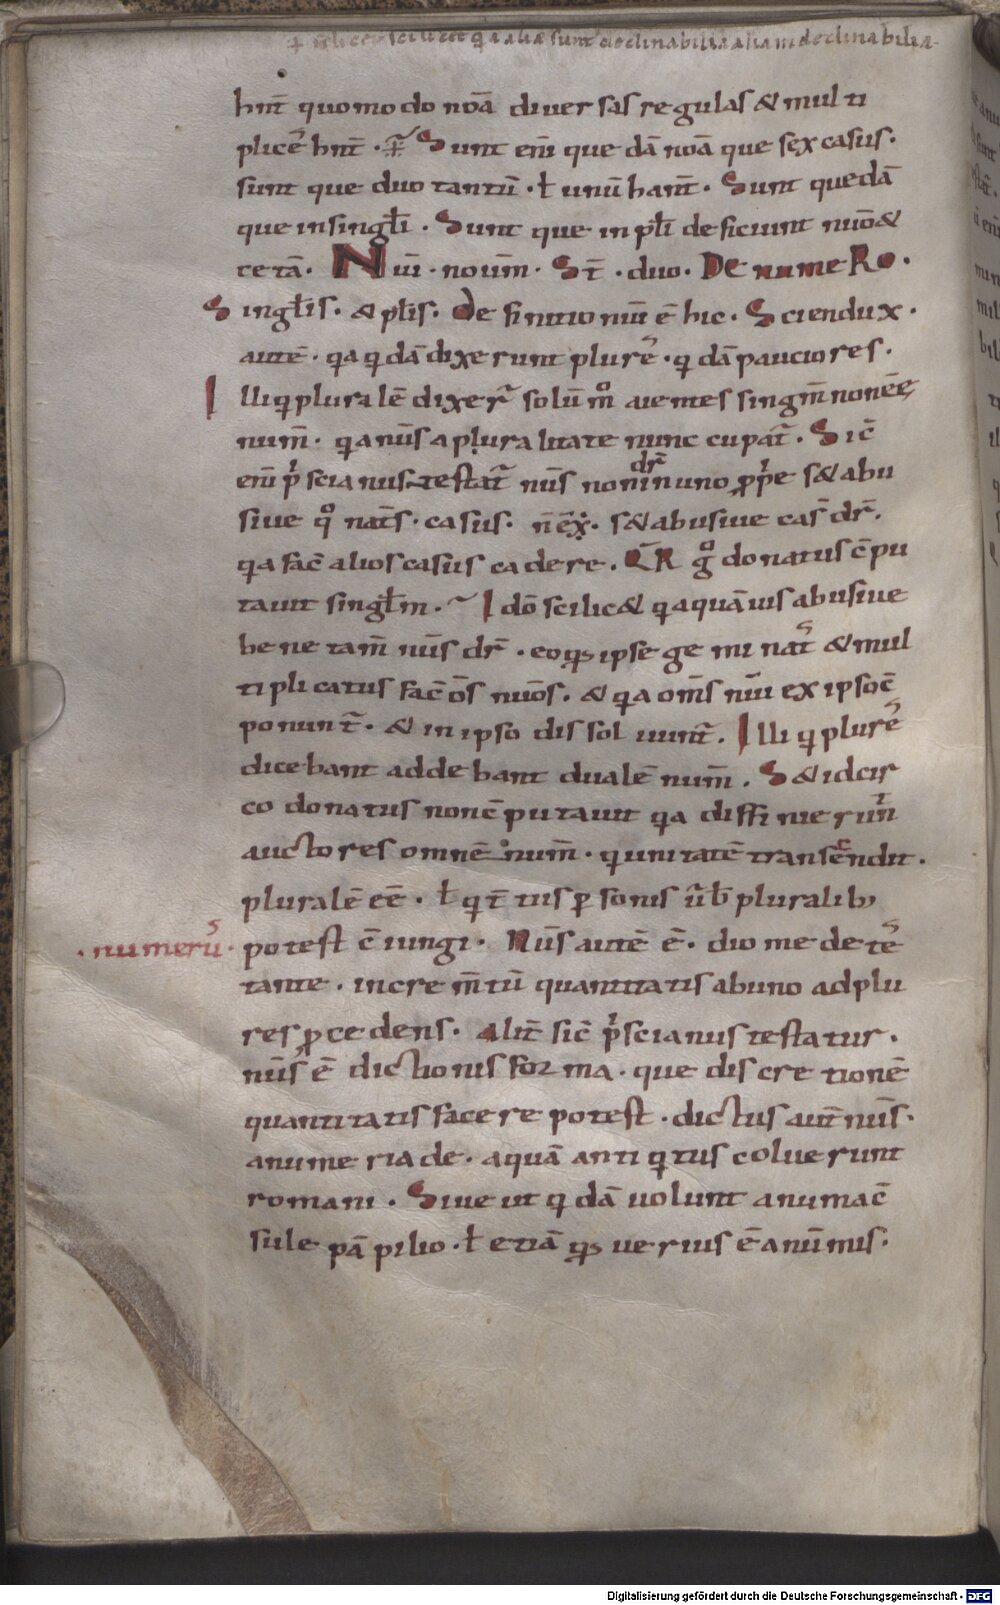 scilicet q̄a aliae sunt declinabilia alia indeclinabilia
hnt̄ quomodo noā diversas regulas & multi
plicē hnt̄ · Sunt enī que dā noā que sex casus·
sunt que duo tantū · ł unū hant̄ · Sunt quedā
que in singłi · Sunt que in płi deficiunt nūo &
cetā· Nūi · noum̄ · St̄ · duo · De numeRo ·
Singłis · & płis · De finitio nūi ē hic · Sciendux ·
autē · qa qdā dixerunt plurē · qdā pauciores ·
Illi q pluralē dixer̄ solū mͦ aientes singm̄ non eē
num̄ · qa nūs a pluralitate nuncupat̄ · Sic̄
enī pͥscianus testat̄ nūs non dr̄ in uno ꝓpͥe s& abu
sive qͦ nat̄s · casus · n̄ ēx · s& abusive cas̄ dr̄ ·
qa fac̄ alios casus cadere · QR̄ gͦ donatus c̄pu
tavit singłm · Idō scilic& qa quāuis abusive
bene tam̄ nūs dr̄ · eo qs ipse geminat̄ & mul
tiplicatus fac̄ ōs nuōs · & qa om̄s nūi ex ipso c̄
ponunt̄ · & in ipso dissolvunt̄ · Illi q plurē
dicebant addebant dualē num̄ · S& idcir
co donatus non c̄putavit qa diffinierun̄
auctores omnē num̄ · q unitatē transcendit ·
pluralē eē · ł q t̄tiis ꝑsonis ūb pluralib;
· numerū · potest c̄iungi · Nūs autē ē · diomede tē
tante · increm̄tū quantitatis ab uno ad plu
res ꝓcedens · Alit̄ sic̄ pͥscianus testatur ·
nūs ē dictionis forma · que discretionē
quantitatis facere potest · dictus aut̄ nūs ·
a numeria de · a quā antiqitus coluerunt
romani · Sive ut qdā uolunt a numa c̄
sule pā pilio · ł etiā qs uerius ē a nūmis ·
Digitalisierung gefördert durch die Deutsche Forschungsgemeinschaft · DFG